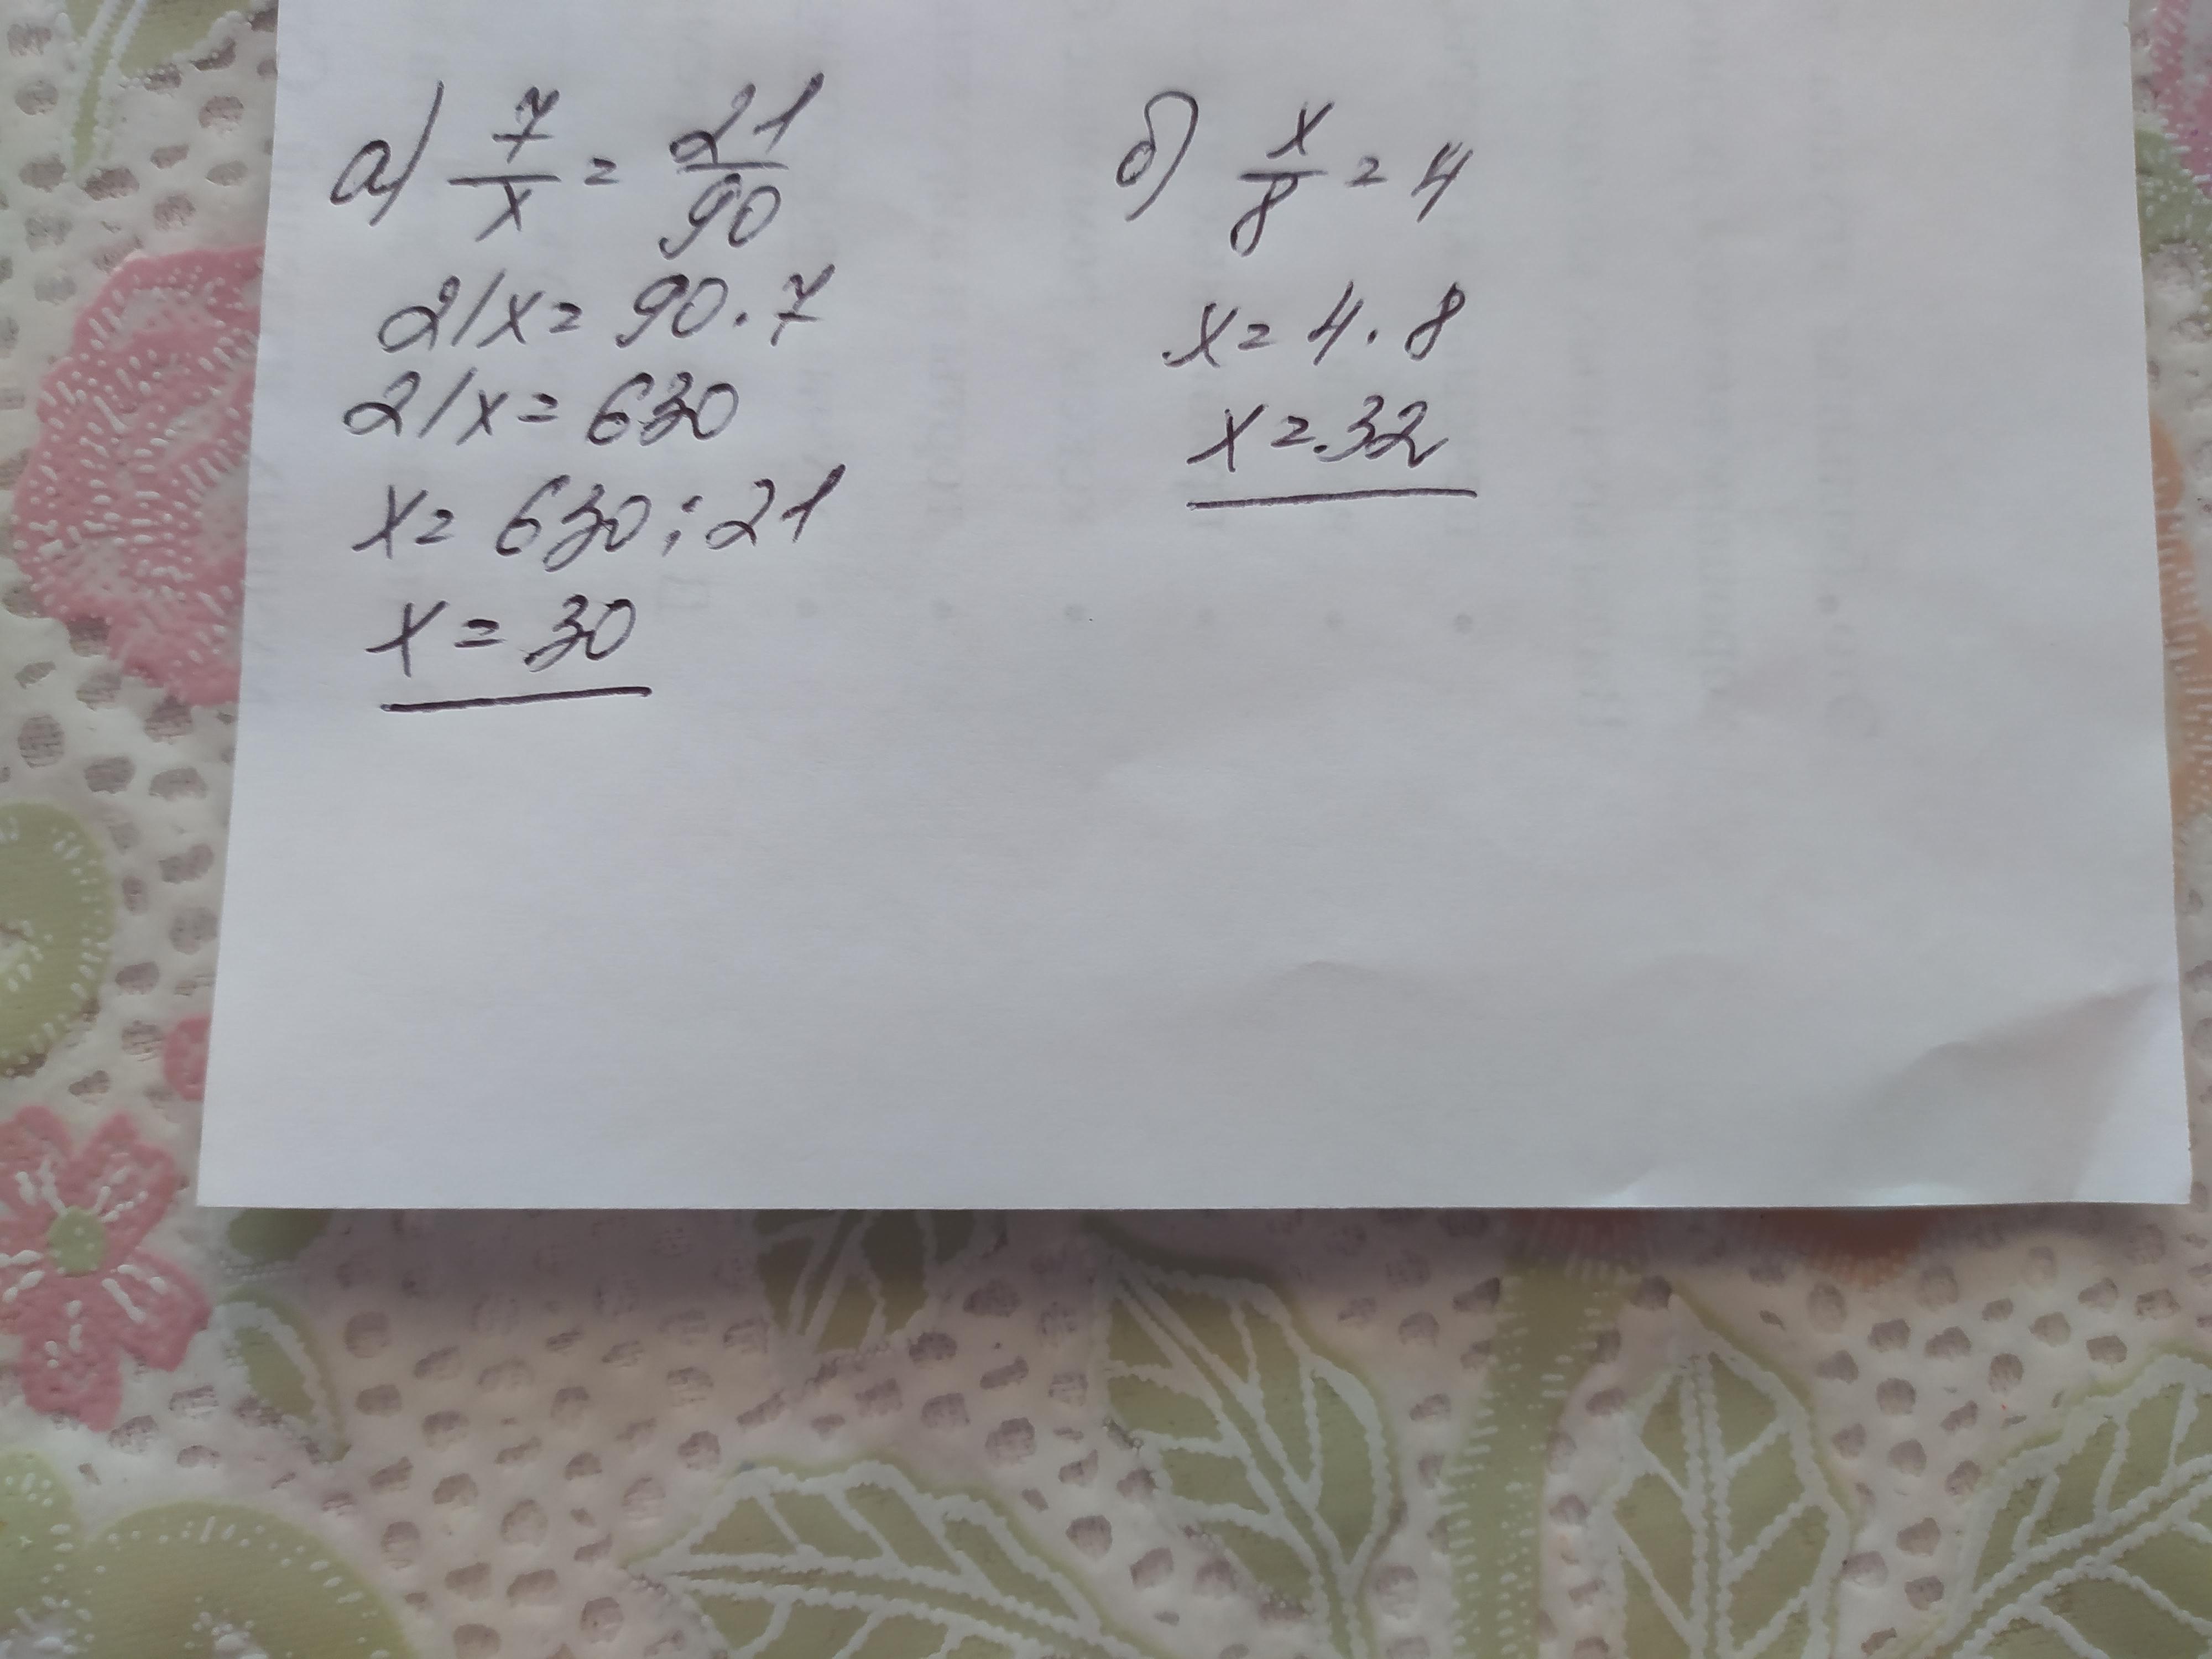 а) 7/x = 21/90
21x = 90 · 7
21x = 630
x = 630 : 21
x = 30
б) x/8 = 4
x = 4 · 8
x = 32